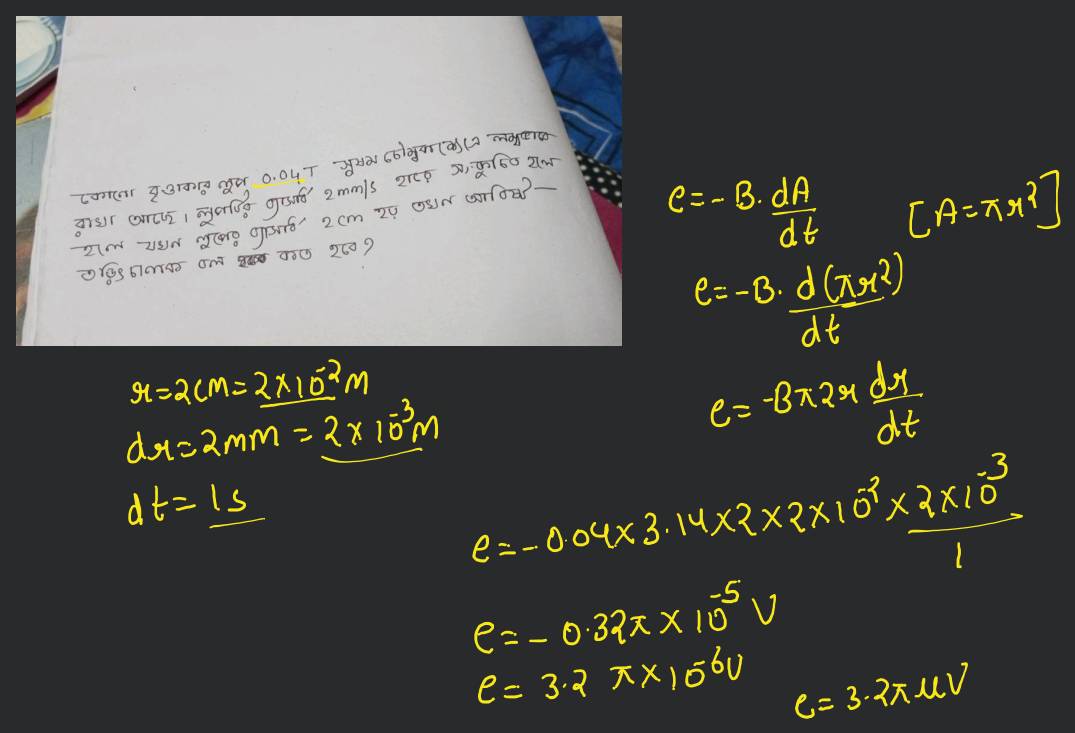 কোনো বৃত্তাকার লুপ 0.04T সুষম চৌম্বকক্ষেত্রে লম্বভাবে
রাখা আছে। লুপটির ব্যাসার্ধ 2mm/s হারে সংকুচিত হলে
হলে যখন লুপের ব্যাসার্ধ 2cm হয় তখন আবিষ্ট
তড়িৎচালক বল কত হবে?
r=2cm=2×10⁻²M
dr=2mm=2×10⁻³M
dt=1s
e=-B.dA/dt [A=πr²]
e=-B.d(πr²)/dt
e=-Bπ2r dr/dt
e=-0.04×3.14×2×2×10⁻²×2×10⁻³/1
e=-0.32π×10⁻⁵V
e=3.2π×10⁻⁶V
e=3.2πμV